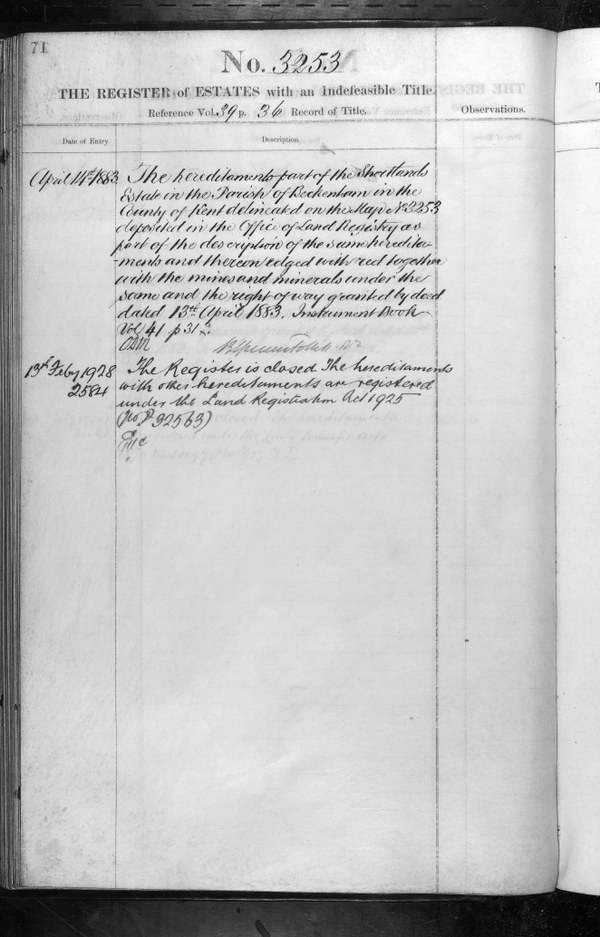 71
No. 3253
THE REGISTER of ESTATES with an Indefeasible Title.
Reference Vol. 39 p. 36 Record of Title.
Observations.
Date of Entry.
Description
April 14th 1883
The hereditaments part of the Shortlands
Estate in the Parish of Beckenham in the
County of Kent delineated on the Map No 3253
deposited in the Office of Land Registry as
part of the description of the same heredita-
-ments and thereon edged with red together
with the mines and minerals under the
same and the right of way granted by deed
dated 13th April 1883. Instrument Book
Vol 41 p 31
13th Feby 1928
The Register is closed The hereditaments
with other hereditaments are registered
under the Land Registration Act 1925
(No P 32563)